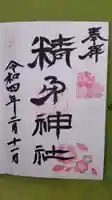 奉拝
精子神社
令和四年二月十一日